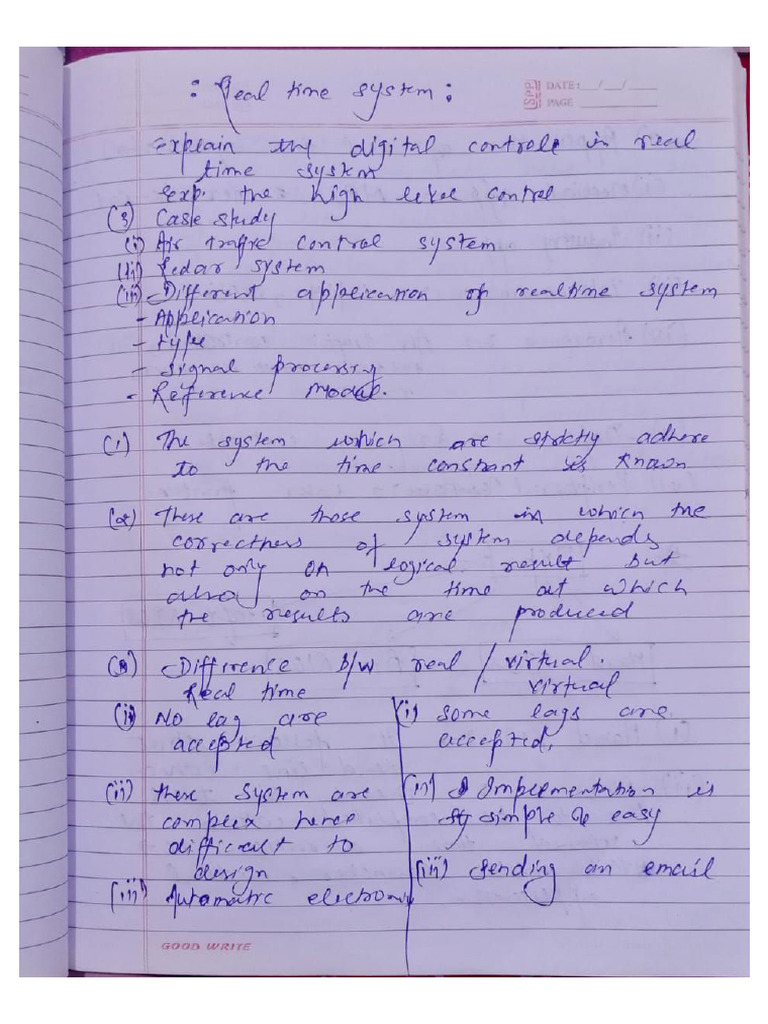 : Real time system :
DATE: __/__/__
PAGE
Explain the digital controll in real
time system
exp. the high level control
(3) Case study
(i) Air trafic control system
(ii) Redar system
(iii) Different application of realtime system
- Application
- type
- signal processing
- Reference model.
(1) The system which are strictly adhere
to the time constant is known
(2) These are those system in which the
correctness of system depends
not only on logical result but
also on the time at which
the results are produced
Difference b/w real / virtual.
Real time virtual
(i) No lag are (i) some lags are
accepted accepted,
(ii) these system are (ii) Implementation is
complex hence simple & easy
difficult to
design (iii) sending an email
(iii) Automatic electronic
GOOD WRITE